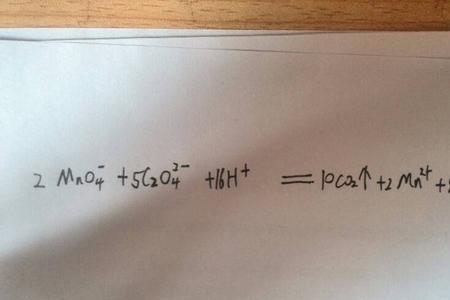 2 MnO₄⁻ + 5C₂O₄²⁻ + 16H⁺ = 10CO₂↑ + 2Mn²⁺ +